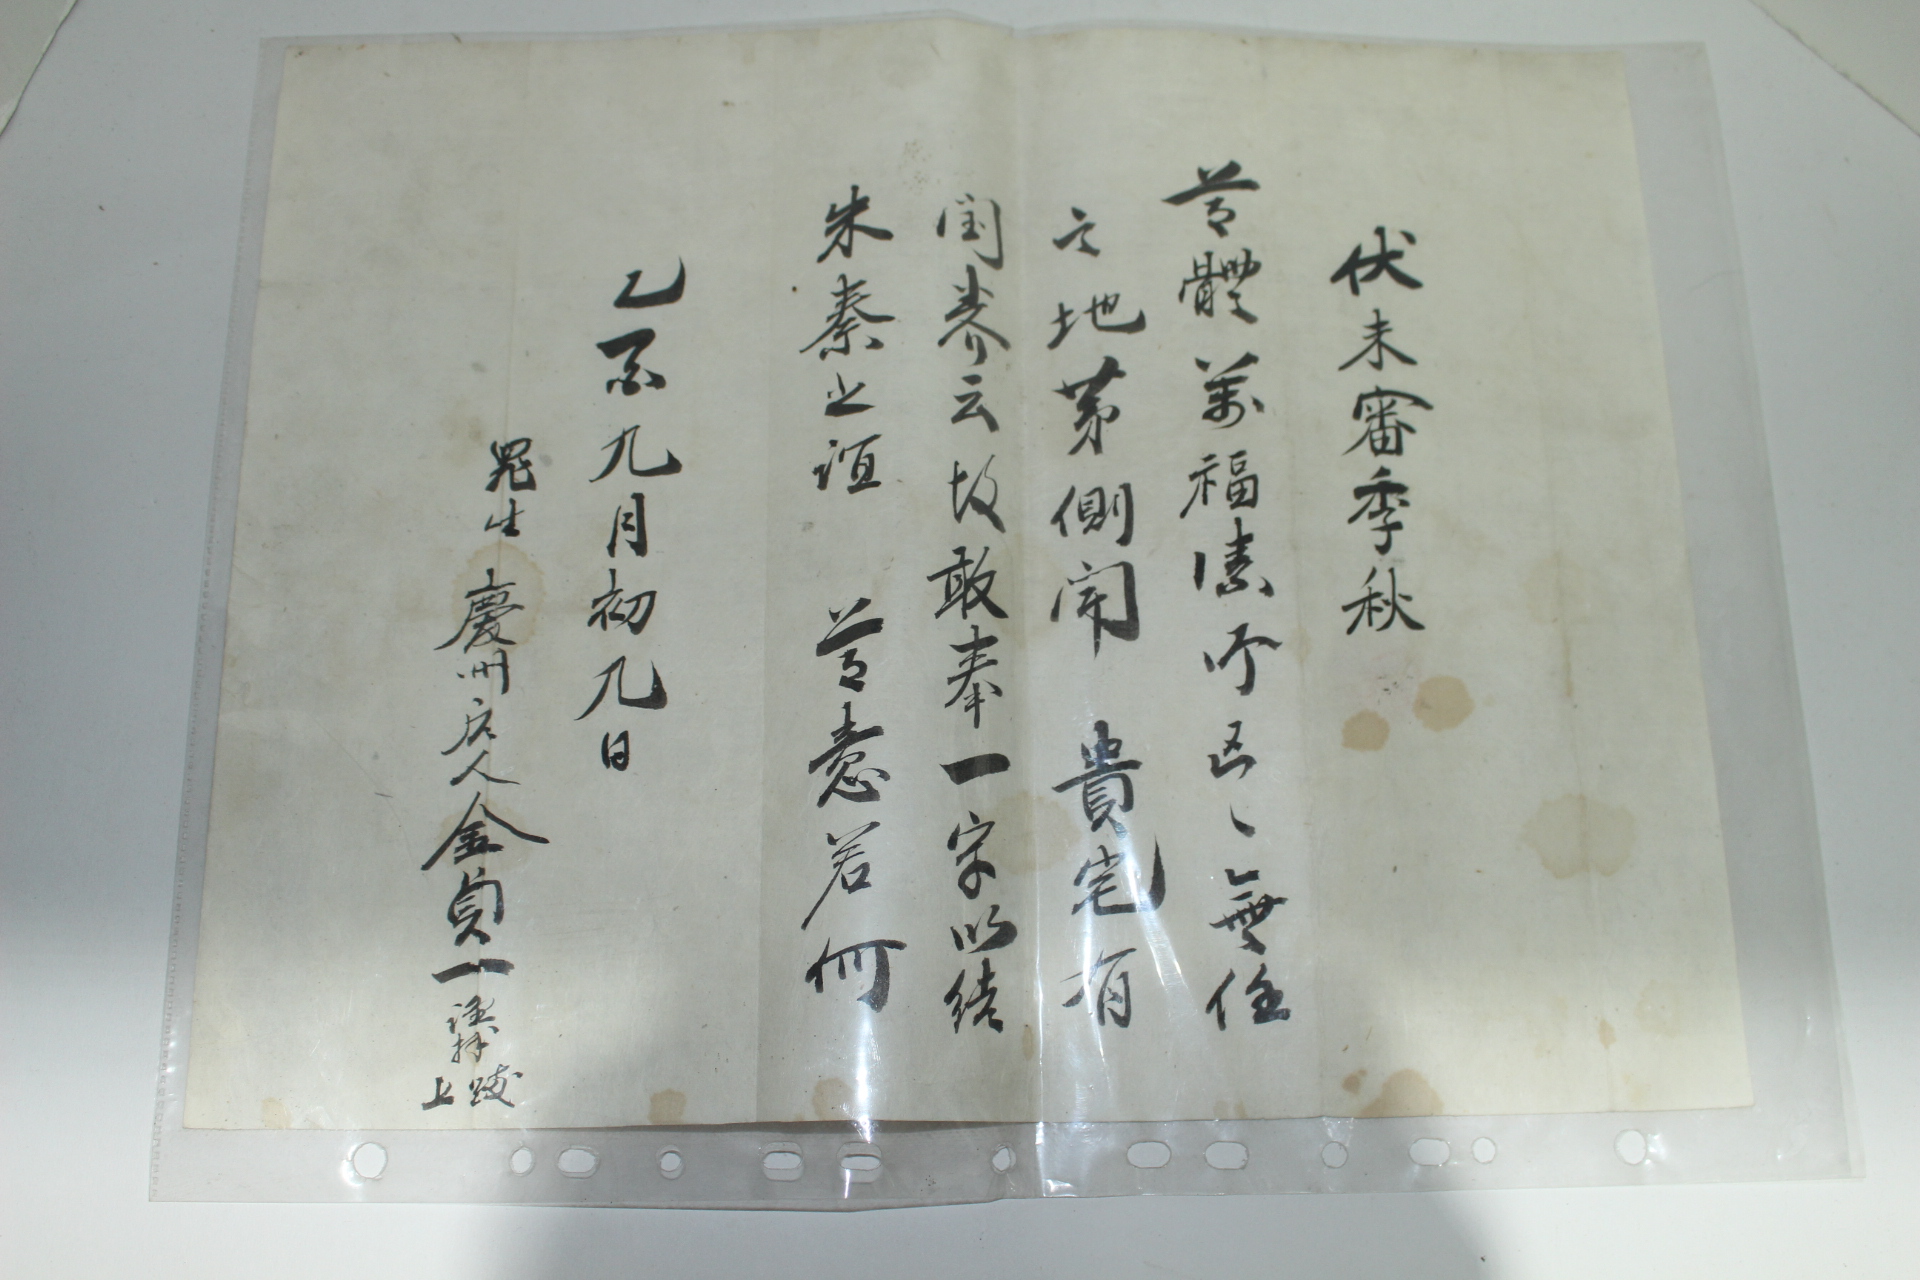 伏未審季秋
尊體萬福溸仰區〃無任
之地第側聞 貴宅有
閨養云故敢奉一字以結
朱秦之誼 尊意若何
乙酉九月初九日
罪生 慶州后人金貞一謹拜
上跋